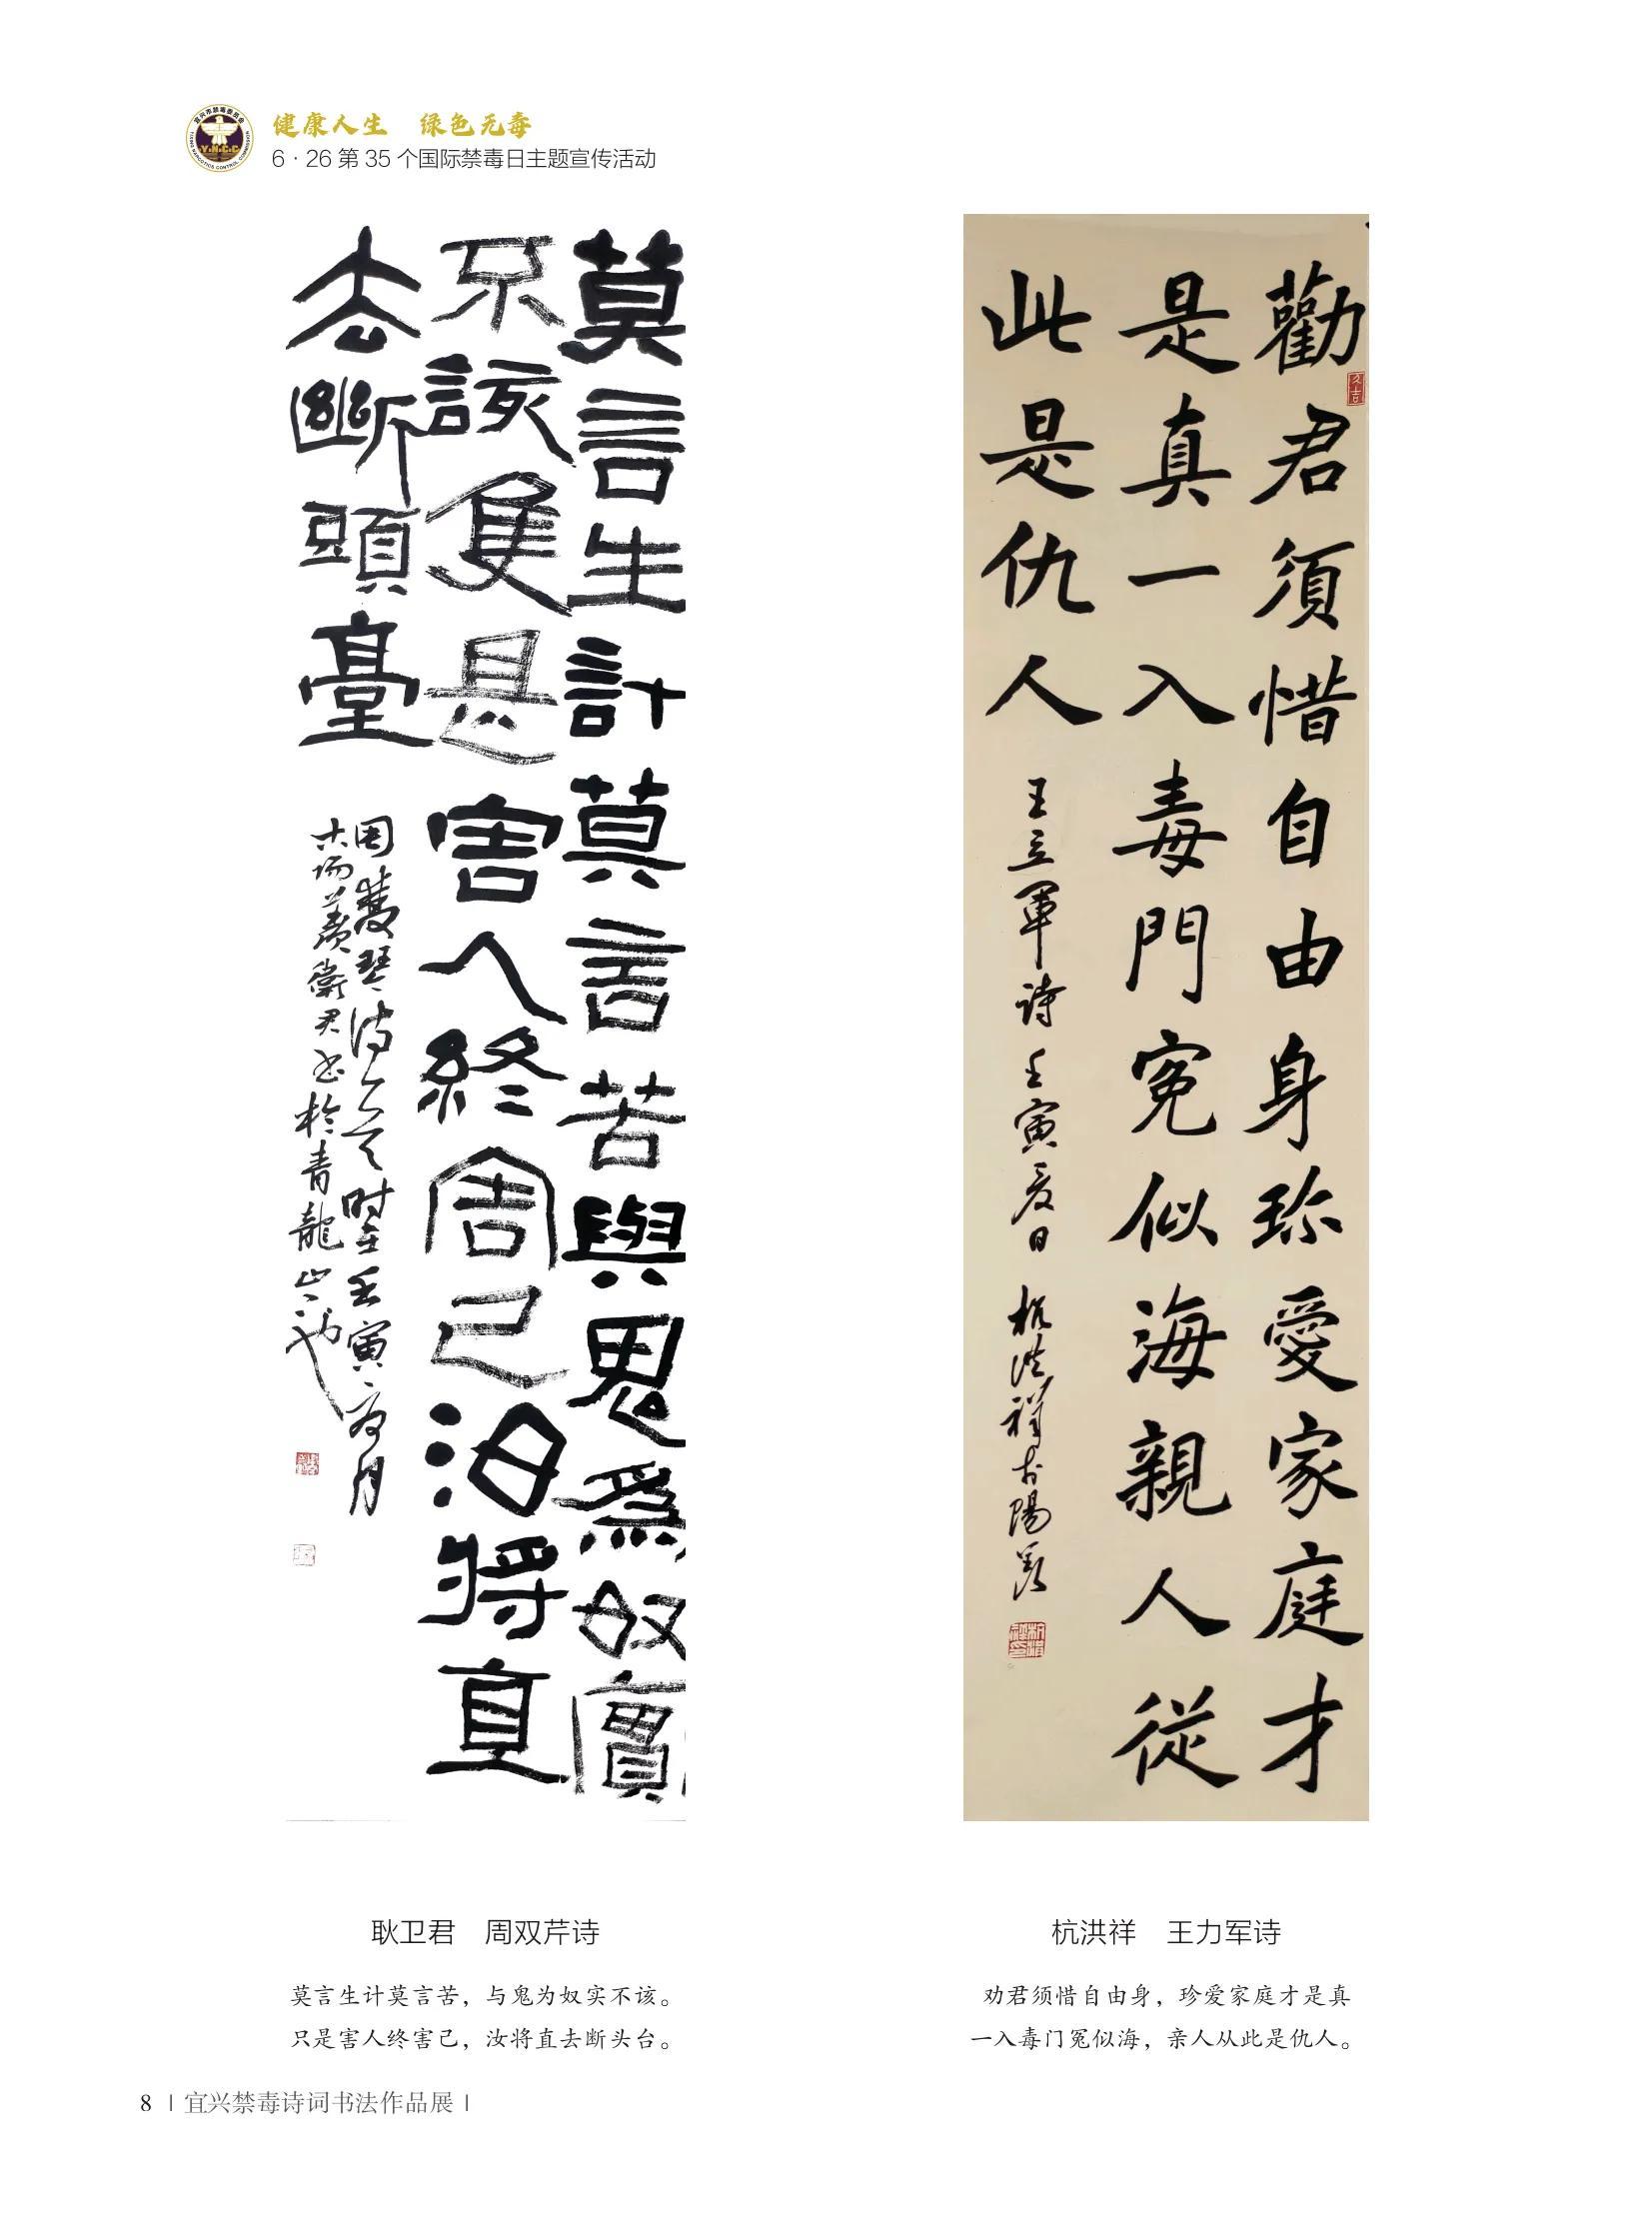 宜兴市禁毒委员会
YIXING NARCOTICS CONTROL COMMISSION
Y.N.C.C
健康人生　绿色无毒
6·26 第 35 个国际禁毒日主题宣传活动
莫言生計莫言苦與鬼為奴實
不該隻是害人終害己汝將直
去斷頭臺
勸君須惜自由身珍愛家庭才
是真一入毒門冤似海親人從
此是仇人
王立軍诗 壬寅夏日 杭洪祥於陽羡
耿卫君　周双芹诗
莫言生计莫言苦，与鬼为奴实不该。
只是害人终害己，汝将直去断头台。
杭洪祥　王力军诗
劝君须惜自由身，珍爱家庭才是真
一入毒门冤似海，亲人从此是仇人。
8 | 宜兴禁毒诗词书法作品展 |